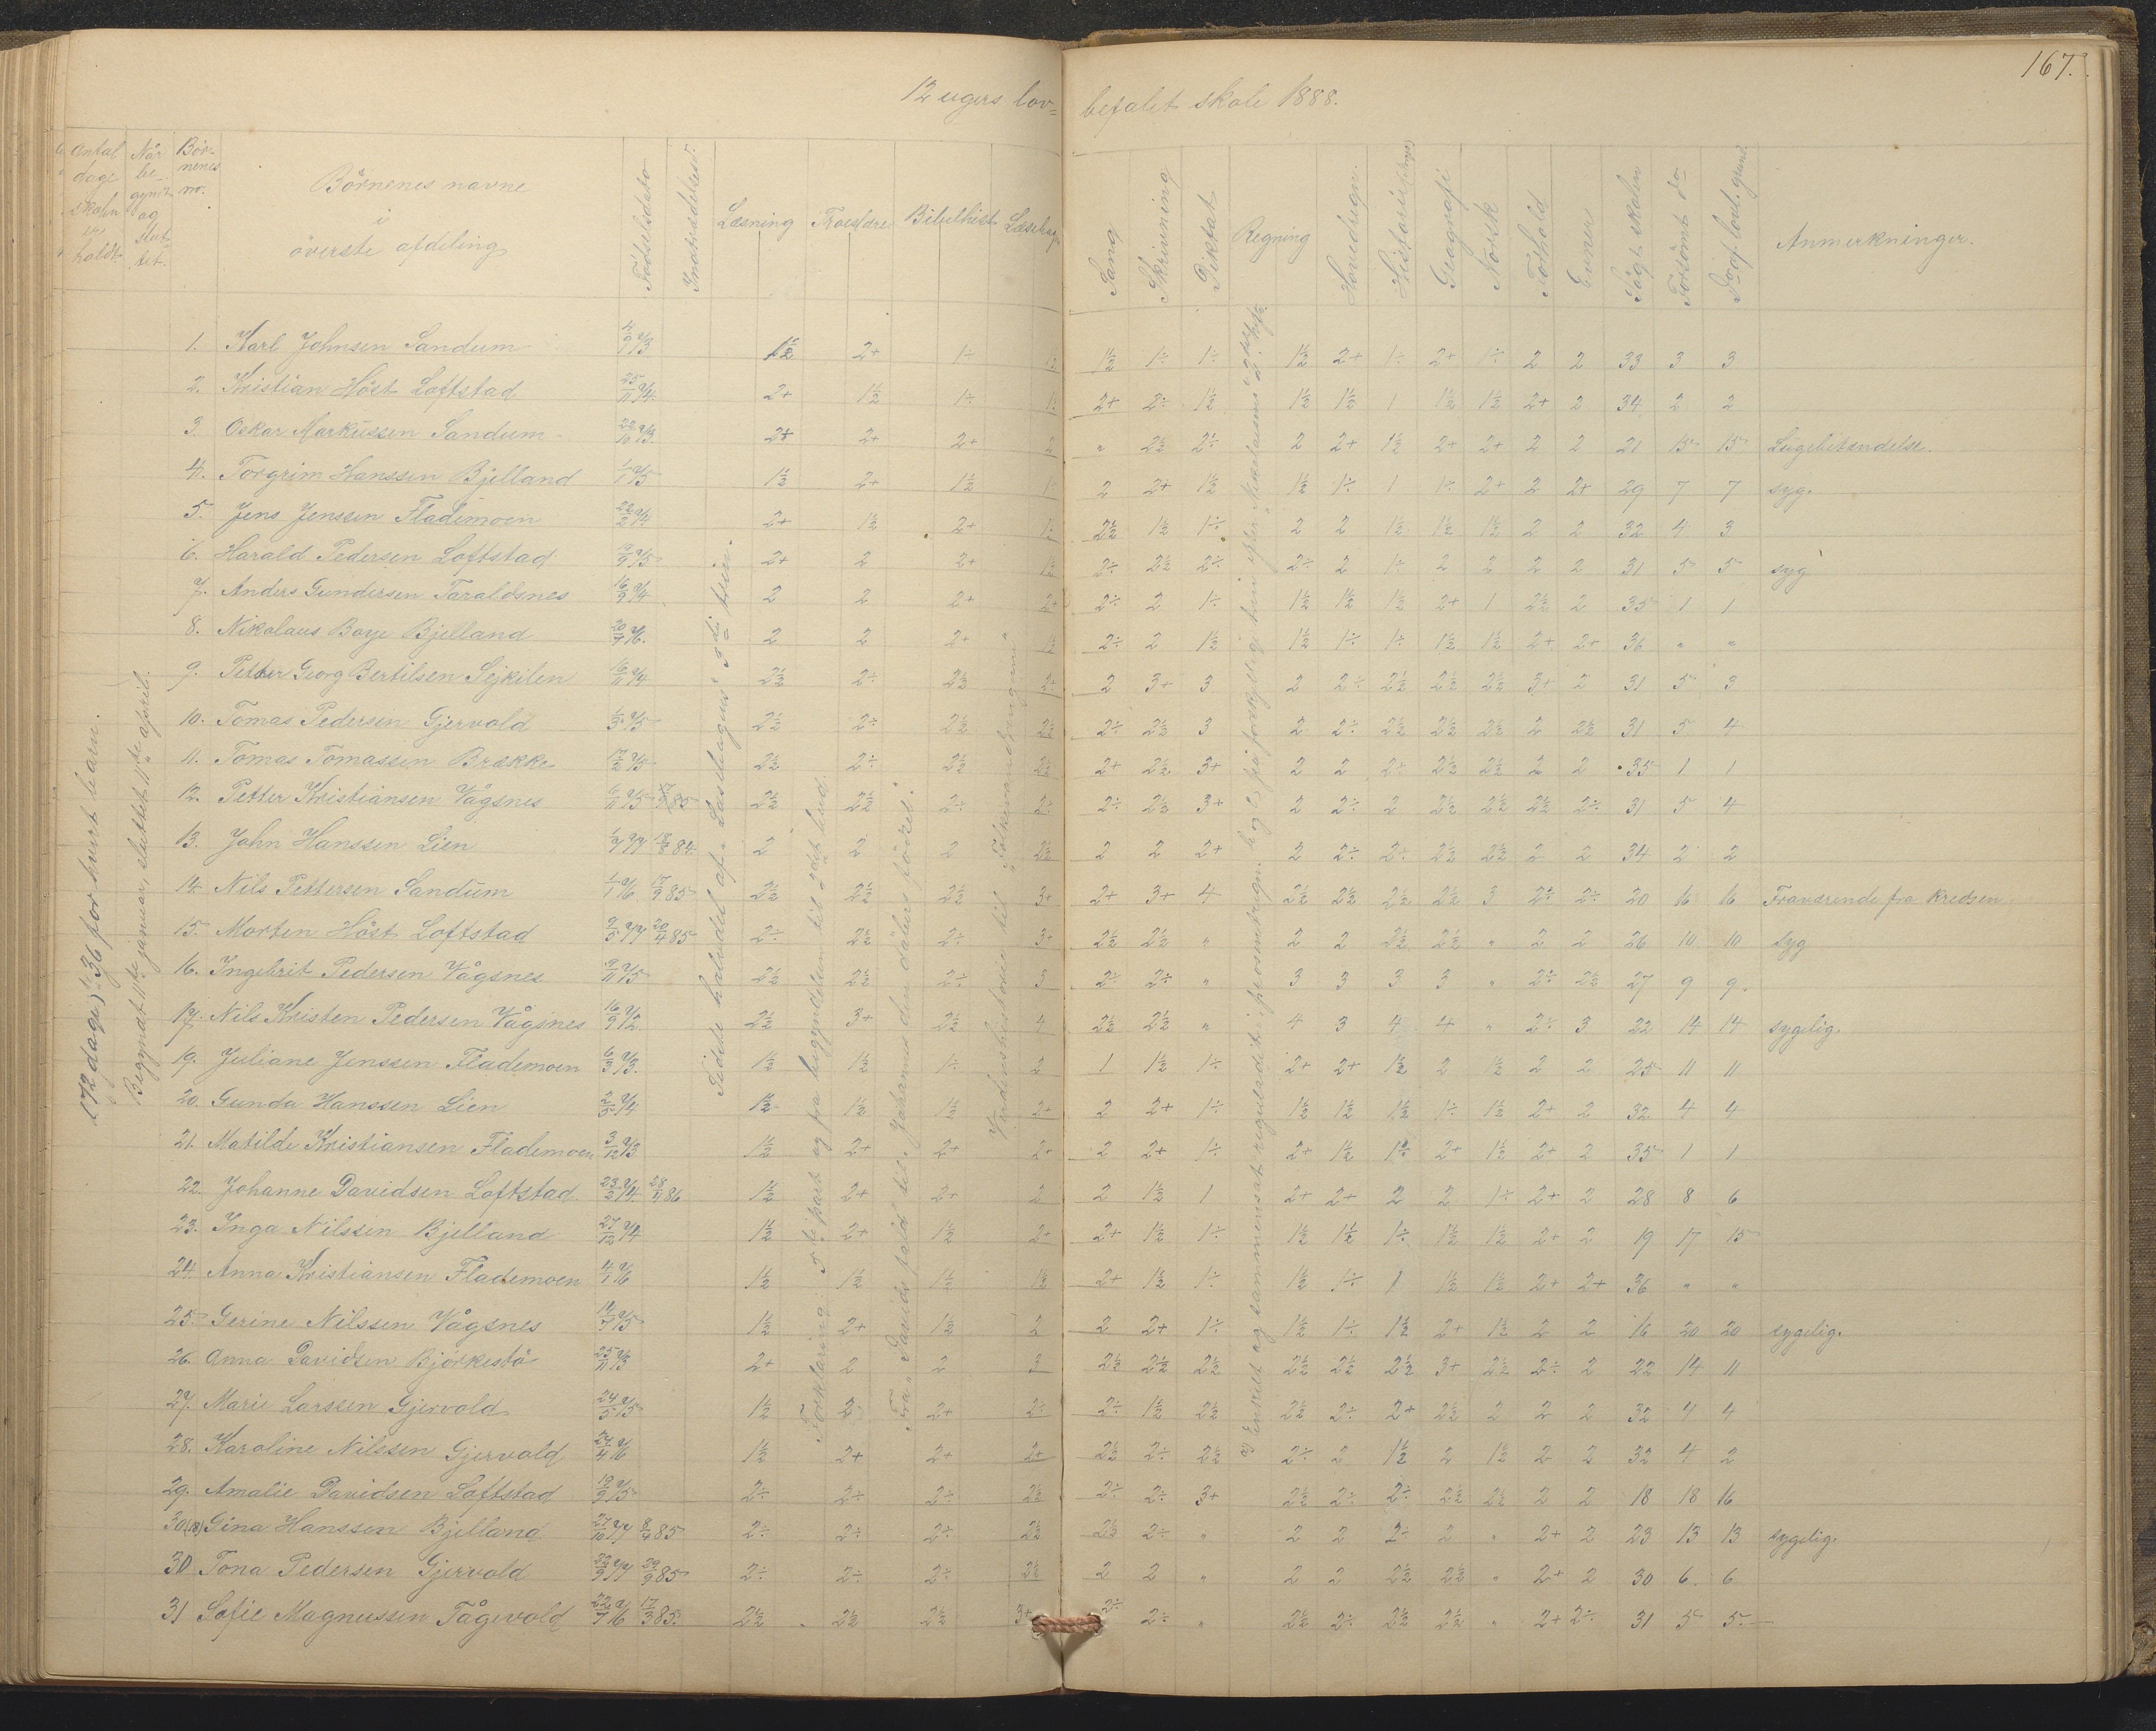 167.
12 ugers lov= befalet skole 1888.
Antal dage skolen er holdt.
Når be- gynt og slut- tet.
Bör- nenes nr.
Börnenes navne i överste afdeling
Födselsdato
Indtrædelsesd.
Læsning
Troeslære
Bibelhist.
Sang
Skrivning
Diktat
Regning
Hovedregn.
Historie
Geografi
Norsk
Forhold
Evner
Sögt skolen
Forsömt do
Do af lovl. grund.
Anmerkninger.
(72 dage) ɔ: 36 for hvert barn.
Begyndt 11te januar, sluttet 11te april.
1. Karl Johnsen Sandum 1½ 2+ 1÷ 1½ 1÷ 1÷ 1½ 2+ 1÷ 2+ 1÷ 2 2 33 3 3
2. Kristian Höst Loftstad 2+ 1½ 1÷ 2+ 2÷ 1½ 1½ 1½ 1 1½ 1½ 2+ 2 34 2 2
3. Oskar Markussen Sandum 2+ 2+ 2+ 2 " 2½ 2÷ 2 2+ 1½ 2+ 2+ 2 2 21 15 15 Lugebetendelse.
4. Torgrim Hanssen Bjelland 1½ 2+ 1½ 2 2+ 1½ 1½ 1÷ 1 1÷ 2+ 2 2+ 29 7 7 syg.
5. Jens Jenssen Flademoen 2+ 1½ 2+ 2½ 1½ 1÷ 2 2 1½ 1½ 1½ 2 2 32 4 3
6. Harald Pedersen Loftstad 2+ 2 2+ 1½ 2÷ 2½ 2÷ 2÷ 2 1÷ 2 2 2 2 31 5 5 syg
7. Anders Gundersen Taraldsnes 2 2 2+ 2+ 2÷ 2 1÷ 1½ 1½ 1½ 2+ 1 2½ 2 35 1 1
8. Nikolaus Boye Bjelland 2 2 2+ 1½ 2÷ 2 1½ 1½ 1÷ 1÷ 1½ 1½ 2+ 2+ 36 " "
9. Petter Georg Bertilsen Sejkilen 2½ 2÷ 2½ 2+ 2 3+ 3 2 2÷ 2½ 2½ 2½ 3+ 2 31 5 3
10. Tomas Pedersen Gjervold 2½ 2÷ 2½ 2½ 2÷ 2½ 3 2 2÷ 2½ 2½ 2½ 2 2½ 31 5 4
11. Tomas Tomassen Brække 2½ 2÷ 2½ 2½ 2+ 2½ 3+ 2 2 2÷ 2½ 2½ 2 2 35 1 1
12. Petter Kristiansen Vågsnes 2½ 2½ 2÷ 2÷ 2÷ 2½ 3+ 2 2÷ 2 2½ 2½ 2½ 2÷ 31 5 4
13. John Hanssen Lien 18/8 84. 2 2 2 2½ 2 2 2+ 2 2÷ 2÷ 2½ 2½ 2 2 34 2 2
14. Nils Pettersen Sandum 17/9 85 2½ 2½ 2½ 3+ 2+ 3+ 4 2½ 2½ 2½ 2½ 3 2÷ 2÷ 20 16 16 Fraværende fra kredsen
15. Morten Höst Loftstad 20/4 85 2÷ 2½ 2÷ 3+ 2½ 2½ " 2 2 2½ 2½ " 2 2 26 10 10 syg
16. Ingebrit Pedersen Vågsnes 2½ 2½ 2÷ 3 2÷ 2÷ " 3 3 3 3 " 2÷ 2½ 27 9 9.
17. Nils Kristen Pedersen Vågsnes 2½ 3+ 2½ 4 2½ 2½ " 4 3 4 4 " 2÷ 3 22 14 14 sygelig.
19. Juliane Jenssen Flademoen 1½ 1½ 1÷ 2 1 1½ 1÷ 2+ 2+ 1½ 2 1½ 2 2 25 11 11
20. Gunda Hanssen Lien 1½ 1½ 1½ 2+ 2 2+ 1÷ 1½ 1½ 1½ 1÷ 1½ 2+ 2 32 4 4
21. Matilde Kristiansen Flademoen 1½ 2+ 2+ 2+ 2 2+ 1÷ 2+ 1½ 1÷ 2+ 1½ 2+ 2 35 1 1
22. Johanne Davidsen Loftstad 1½ 2+ 2+ 2 2 1½ 1 2+ 2+ 2 2 1÷ 2+ 2 28 8 6
23. Inga Nilssen Bjelland 1½ 2+ 1½ 2+ 2+ 1½ 1÷ 1½ 1½ 1÷ 1½ 1½ 2+ 2 19 17 15
24. Anna Kristiansen Flademoen 1½ 1½ 1½ 1½ 2+ 1½ 1÷ 1½ 1÷ 1 1½ 1½ 2+ 2+ 36 " "
25. Gerine Nilssen Vågsnes 1½ 2+ 1½ 2 2 2+ 1÷ 1½ 1÷ 1½ 2+ 1½ 2 2 16 20 20 sygelig.
26. Anna Davidsen Björkestö 2+ 2 2 3 2½ 2½ 2½ 2½ 2½ 2½ 3+ 2½ 2÷ 2 22 14 11
27. Marie Larssen Gjervold 1½ 2 2+ 2÷ 2÷ 1½ 2½ 2½ 2÷ 2+ 2½ 2 2 2 32 4 4
28. Karoline Nilssen Gjervold 1½ 2+ 2+ 2+ 2½ 2÷ 2½ 2÷ 2 1½ 2 1½ 2 2 32 4 2
29. Amalie Davidsen Loftstad 2÷ 2÷ 2÷ 2½ 2÷ 2÷ 3+ 2½ 2÷ 2÷ 2½ 2½ 2 2 18 18 16
30(18) Gina Hanssen Bjelland 8/4 85 2÷ 2÷ 2÷ 2½ 2½ 2÷ " 2 2 2÷ 2 " 2+ 2 23 13 13 sygelig.
30 Tona Pedersen Gjervold 29/9 85 2÷ 2÷ 2÷ 2½ 2 2 " 2 2 2½ 2½ " 2+ 2 30 6. 6
31 Sofie Magnussen Tågevold 17/3 85. 2½ 2½ 2½ 3+ 2÷ 2÷ " 2½ 2÷ 2½ 2½ " 2+ 2÷ 31 5 5.
Fædrelandshistorie til "Folkevandringene".